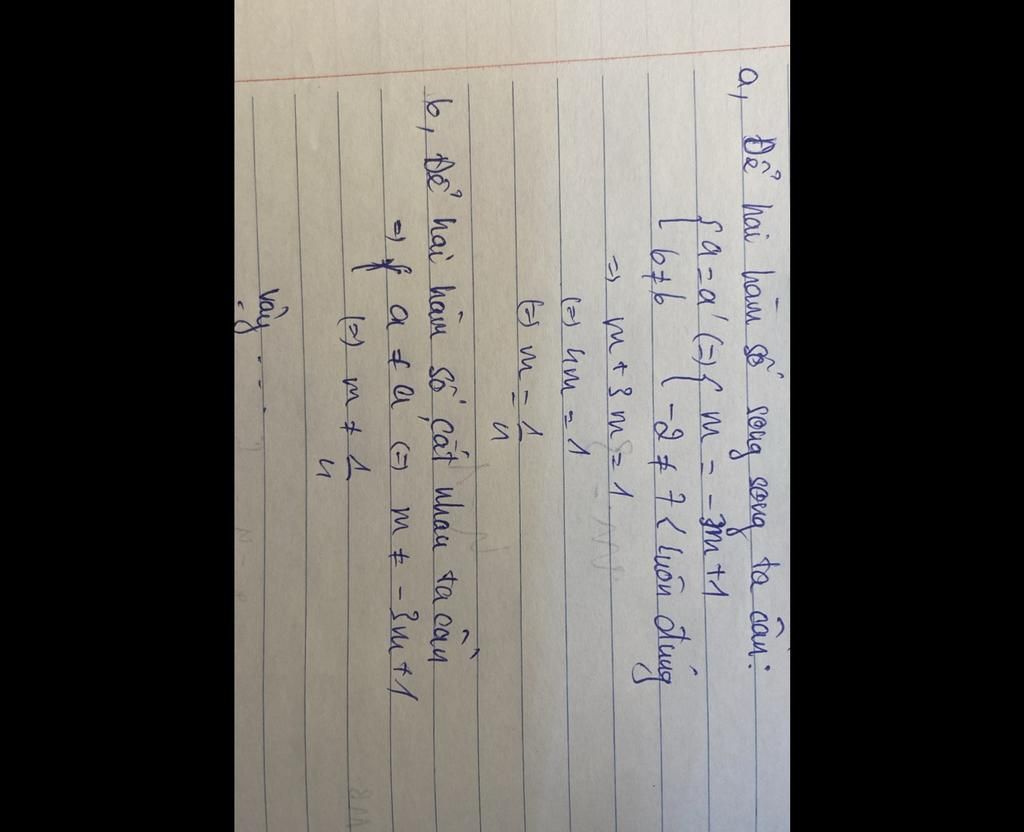 a, Để hai hàm số song song ta cần:
{ a = a' (=) { m = -3m + 1
{ b ≠ b { -2 ≠ 7 < luôn đúng
=> m + 3m = 1
(=) 4m = 1
(=) m = 1/4
b, Để hai hàm số cắt nhau ta cần
=> a ≠ a' (=) m ≠ -3m + 1
(=) m ≠ 1/4
Vậy ....